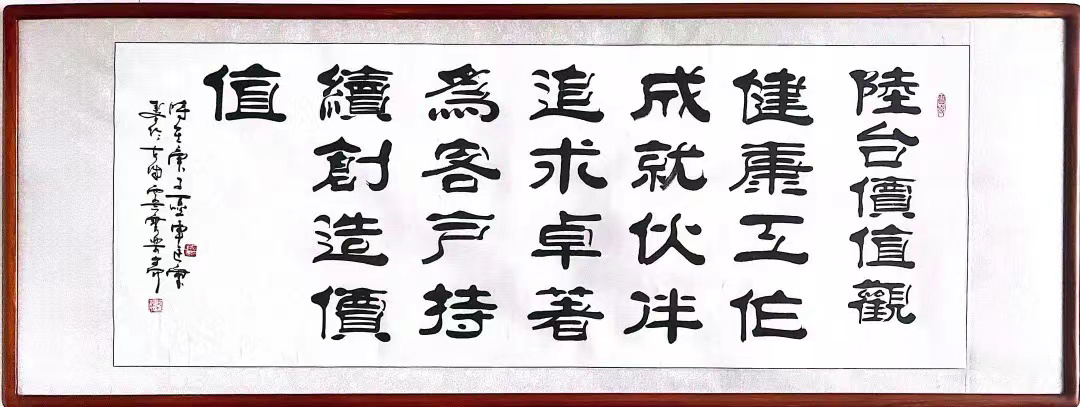 陸台價值觀
健康工作
成就伙伴
追求卓著
為客戶持
續創造價
值